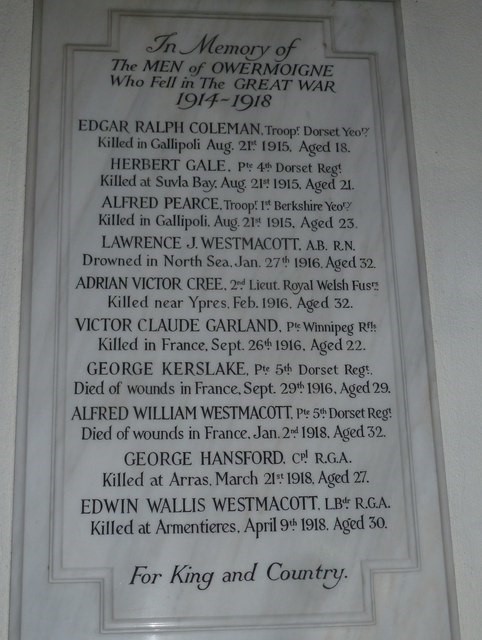 In Memory of
The MEN of OWERMOIGNE
Who Fell in The GREAT WAR
1914-1918
EDGAR RALPH COLEMAN, Troopr. Dorset Yeory.
Killed in Gallipoli Aug. 21st 1915, Aged 18.
HERBERT GALE, Pte 4th Dorset Regt.
Killed at Suvla Bay, Aug. 21st 1915, Aged 21.
ALFRED PEARCE, Troopr. 1st Berkshire Yeory.
Killed in Gallipoli, Aug. 21st 1915, Aged 23.
LAWRENCE J. WESTMACOTT, A.B. R.N.
Drowned in North Sea, Jan. 27th 1916, Aged 32.
ADRIAN VICTOR CREE, 2nd Lieut. Royal Welsh Fusrs.
Killed near Ypres, Feb. 1916, Aged 32.
VICTOR CLAUDE GARLAND, Pte Winnipeg Rfls.
Killed in France, Sept. 26th 1916, Aged 22.
GEORGE KERSLAKE, Pte 5th Dorset Regt.
Died of wounds in France, Sept. 29th 1916, Aged 29.
ALFRED WILLIAM WESTMACOTT, Pte 5th Dorset Regt.
Died of wounds in France, Jan. 2nd 1918, Aged 32.
GEORGE HANSFORD, Cpl R.G.A.
Killed at Arras, March 21st 1918, Aged 27.
EDWIN WALLIS WESTMACOTT, L.Bdr. R.G.A.
Killed at Armentieres, April 9th 1918, Aged 30.
For King and Country.